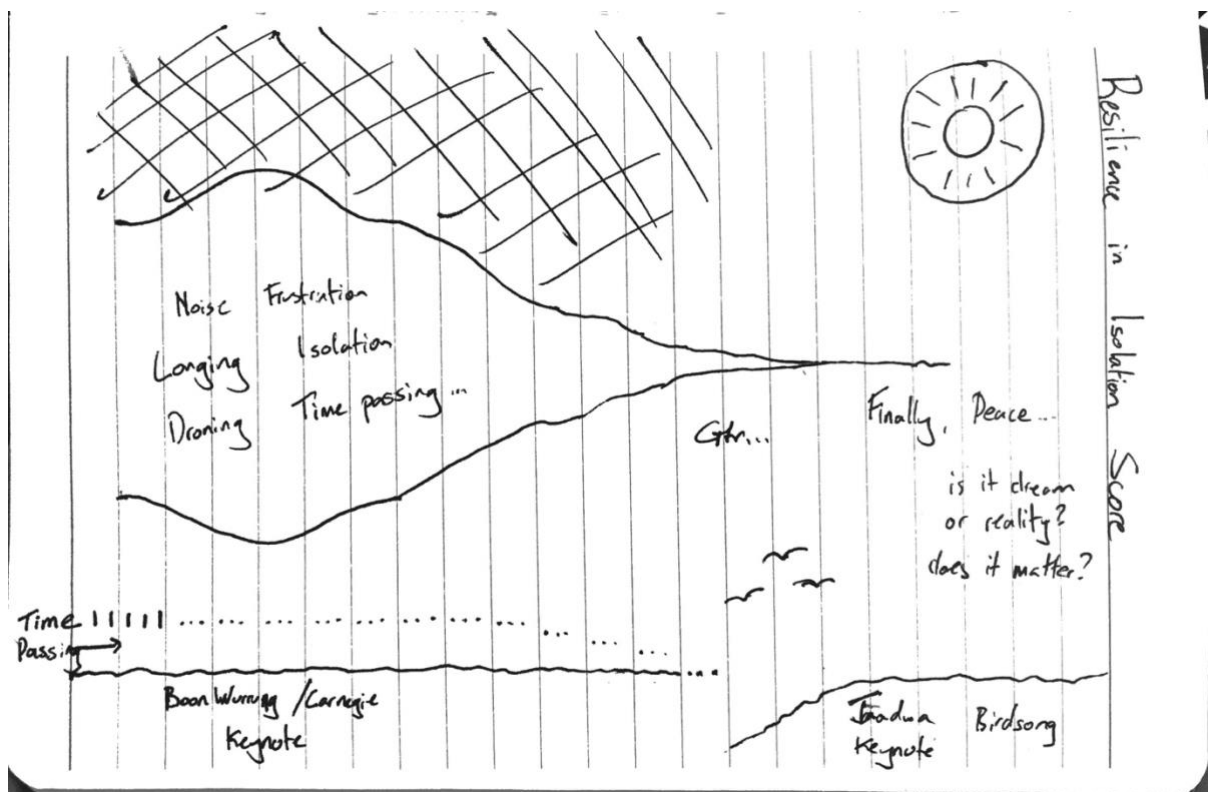 Resilience in Isolation Score
Noise Frustration
Longing Isolation
Droning Time passing...
Gtr...
Finally, Peace...
is it dream
or reality?
does it matter?
Time
Passing
Boon Wurrung / Carnegie
Keynote
Keynote
Birdsong